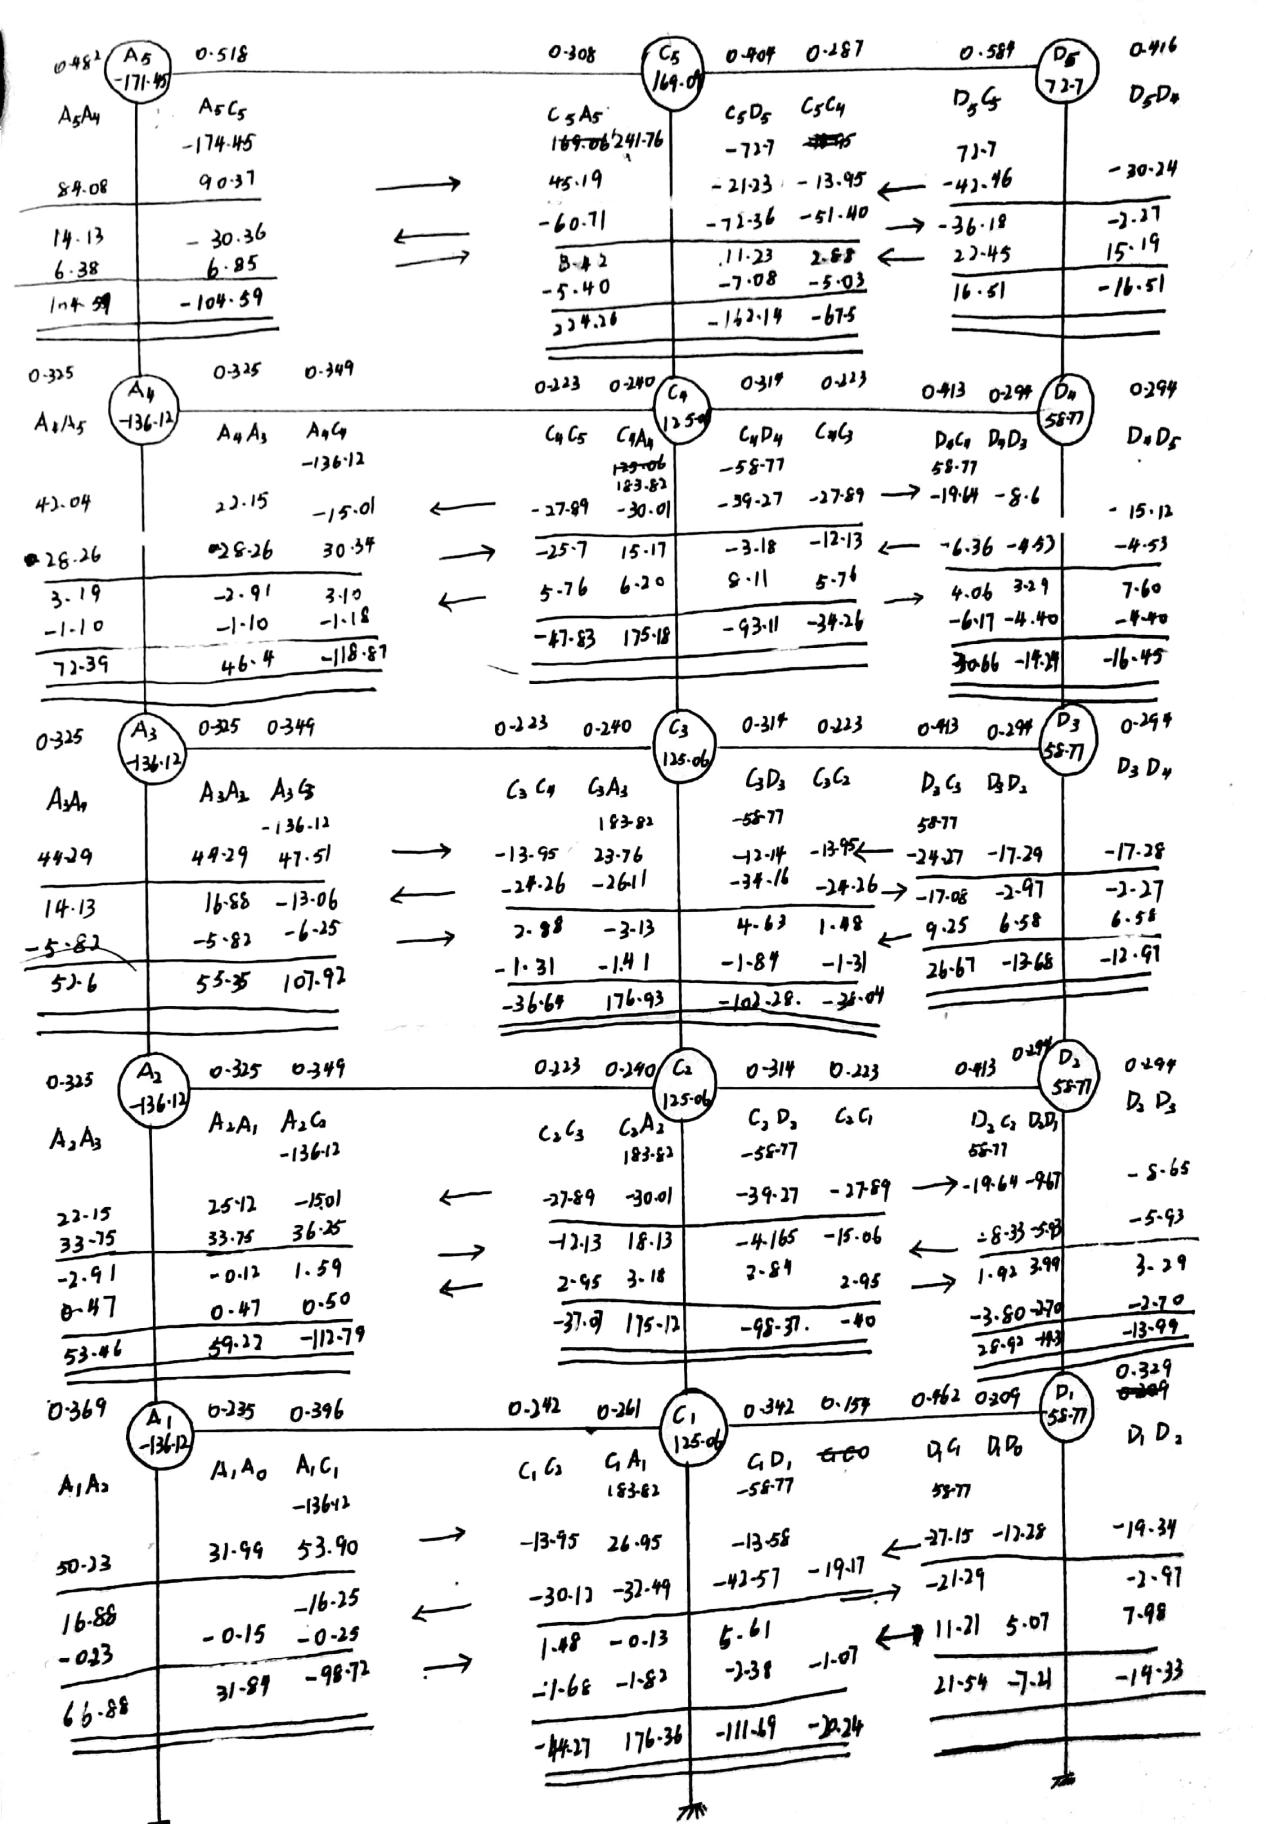 0.482 A5 0.518 0.308 C5 0.404 0.287 0.584 D5 0.416
-171.45 169.09 72.7
A5A4 A5C5 C5A5 C5D5 C5C4 D5C5 D5D4
-174.45 169.06 241.76 -72.7 72.7
84.08 90.37 → 45.19 -21.23 -13.95 ← -42.46 -30.24
14.13 -30.36 ← -60.71 -72.36 -51.40 → -36.18 -2.27
6.38 6.85 → 8.42 11.23 2.88 ← 22.45 15.19
-5.40 -7.08 -5.03
104.59 -104.59 224.26 -162.14 -67.5 16.51 -16.51
0.325 A4 0.325 0.349 0.223 0.240 C4 0.314 0.223 0.413 0.294 D4 0.294
-136.12 125.06 58.77
A4A5 A4A3 A4C4 C4C5 C4A4 C4D4 C4C3 D4C4 D4D3 D4D5
-136.12 125.06 -58.77 58.77
183.82
42.04 22.15 -15.01 ← -27.89 -30.01 -39.27 -27.89 → -19.64 -8.6 -15.12
28.26 28.26 30.34 → -25.7 15.17 -3.18 -12.13 ← -6.36 -4.53 -4.53
3.19 -2.91 3.10 ← 5.76 6.20 8.11 5.76 → 4.06 3.29 7.60
-1.10 -1.10 -1.18 -6.17 -4.40 -4.40
72.39 46.4 -118.87 -47.83 175.18 -93.11 -34.26 30.66 -14.24 -16.45
0.325 A3 0.325 0.349 0.223 0.240 C3 0.314 0.223 0.413 0.294 D3 0.294
-136.12 125.06 58.77
A3A4 A3A2 A3C3 C3C4 C3A3 C3D3 C3C2 D3C3 D3D2 D3D4
-136.12 183.82 -58.77 58.77
44.29 44.29 47.51 → -13.95 23.76 -12.14 -13.95 ← -24.27 -17.29 -17.28
14.13 16.88 -13.06 ← -24.26 -26.11 -34.16 -24.26 → -17.08 -2.97 -2.27
-5.82 -5.82 -6.25 → 2.88 -3.13 4.63 1.48 ← 9.25 6.58 6.58
-1.31 -1.41 -1.84 -1.31
52.6 55.35 107.92 -36.64 176.93 -102.28. -38.04 26.67 -13.68 -12.97
0.325 A2 0.325 0.349 0.223 0.240 C2 0.314 0.223 0.413 0.294 D2 0.294
-136.12 125.06 58.77
A2A3 A2A1 A2C2 C2C3 C2A2 C2D2 C2C1 D2C2 D2D1 D2D3
-136.12 183.82 -58.77 58.77
22.15 25.12 -15.01 ← -27.89 -30.01 -39.27 -27.89 → -19.64 -9.67 -8.65
33.75 33.75 36.25 → -12.13 18.13 -4.165 -15.06 ← -8.33 -5.93 -5.93
-2.91 -0.12 1.59 ← 2.95 3.18 3.84 2.95 → 1.92 3.99 3.29
0.47 0.47 0.50 -3.80 -2.70 -2.70
53.46 59.22 -112.79 -37.07 175.12 -98.37. -40 28.92 -14.31 -13.99
0.329
0.369 A1 0.235 0.396 0.242 0.261 C1 0.342 0.154 0.462 0.209 D1 0.209
-136.12 125.06 -58.77
A1A2 A1A0 A1C1 C1C2 C1A1 C1D1 C1C0 D1C1 D1D0 D1D2
-136.12 183.82 -58.77 58.77
50.23 31.99 53.90 → -13.95 26.95 -13.58 ← -27.15 -12.28 -19.34
16.88 -16.25 ← -30.12 -32.49 -42.57 -19.17 → -21.29 -2.97
-0.23 -0.15 -0.25 1.48 -0.13 5.61 ← 11.21 5.07 7.98
→ -1.68 -1.82 -2.38 -1.07
66.88 31.84 -98.72 -44.27 176.36 -111.69 -20.24 21.54 -7.21 -14.33